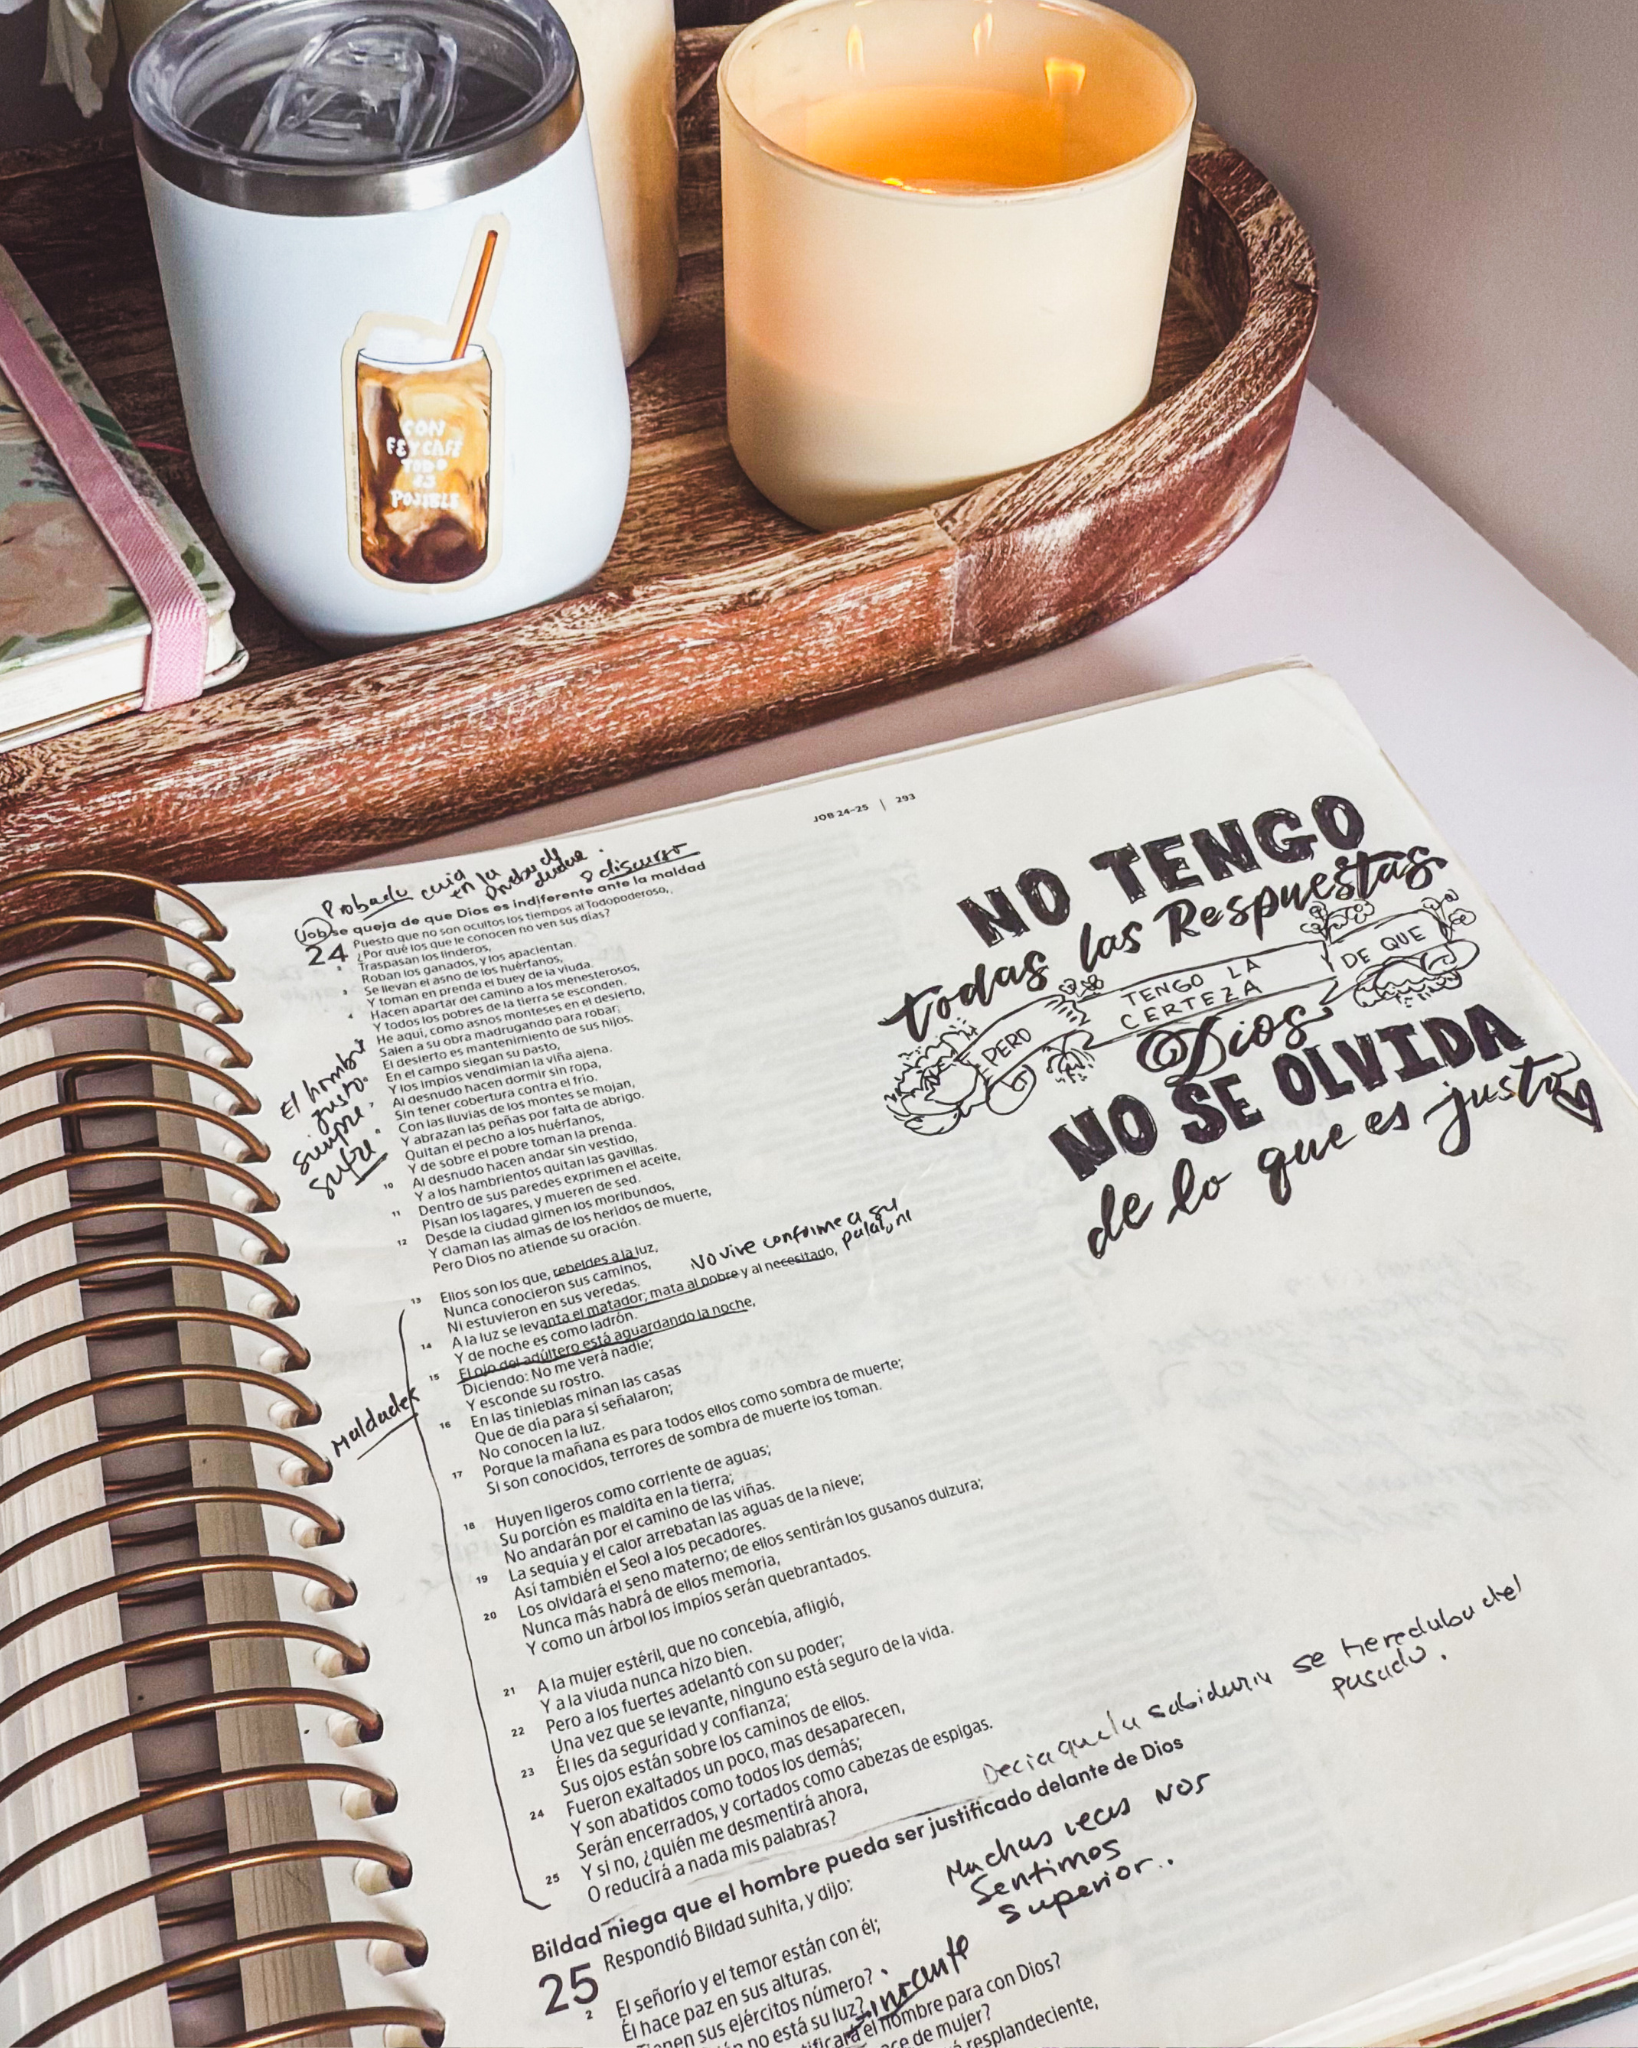 CON
FE Y CAFE
TODO
ES
POSIBLE
JOB 24–25 | 293
NO TENGO
todas las Respuestas
PERO TENGO LA CERTEZA DE QUE
Dios
NO SE OLVIDA
de lo que es justo
Probado
en la
8 discurso
Job se queja de que Dios es indiferente ante la maldad
24 Puesto que no son ocultos los tiempos al Todopoderoso,
¿Por qué los que le conocen no ven sus días?
2 Traspasan los linderos,
Roban los ganados, y los apacientan.
3 Se llevan el asno de los huérfanos,
Y toman en prenda el buey de la viuda.
4 Hacen apartar del camino a los menesterosos,
Y todos los pobres de la tierra se esconden.
He aquí, como asnos monteses en el desierto,
Salen a su obra madrugando para robar;
El desierto es mantenimiento de sus hijos.
En el campo siegan su pasto,
Y los impíos vendimian la viña ajena.
Al desnudo hacen dormir sin ropa,
Sin tener cobertura contra el frío.
Con las lluvias de los montes se mojan,
Y abrazan las peñas por falta de abrigo.
Quitan el pecho a los huérfanos,
Y de sobre el pobre toman la prenda.
10 Al desnudo hacen andar sin vestido,
Y a los hambrientos quitan las gavillas.
11 Dentro de sus paredes exprimen el aceite,
Pisan los lagares, y mueren de sed.
12 Desde la ciudad gimen los moribundos,
Y claman las almas de los heridos de muerte,
Pero Dios no atiende su oración.
El hombre
justo
siempre
sufre
13 Ellos son los que, rebeldes a la luz,
Nunca conocieron sus caminos,
Ni estuvieron en sus veredas.
No vive conforme a su
14 A la luz se levanta el matador; mata al pobre y al necesitado,
Y de noche es como ladrón.
15 El ojo del adúltero está aguardando la noche,
Diciendo: No me verá nadie;
Y esconde su rostro.
16 En las tinieblas minan las casas
Que de día para sí señalaron;
No conocen la luz.
17 Porque la mañana es para todos ellos como sombra de muerte;
Si son conocidos, terrores de sombra de muerte los toman.
Maldades
18 Huyen ligeros como corriente de aguas;
Su porción es maldita en la tierra;
No andarán por el camino de las viñas.
19 La sequía y el calor arrebatan las aguas de la nieve;
Así también el Seol a los pecadores.
20 Los olvidará el seno materno; de ellos sentirán los gusanos dulzura;
Nunca más habrá de ellos memoria,
Y como un árbol los impíos serán quebrantados.
21 A la mujer estéril, que no concebía, afligió,
Y a la viuda nunca hizo bien.
22 Pero a los fuertes adelantó con su poder;
Una vez que se levante, ninguno está seguro de la vida.
23 Él les da seguridad y confianza;
Sus ojos están sobre los caminos de ellos.
24 Fueron exaltados un poco, mas desaparecen,
Y son abatidos como todos los demás;
Serán encerrados, y cortados como cabezas de espigas.
25 Y si no, ¿quién me desmentirá ahora,
O reducirá a nada mis palabras?
Decia que la sabiduria se heredaba del
pasado.
Bildad niega que el hombre pueda ser justificado delante de Dios
25 Respondió Bildad suhita, y dijo:
Muchas veces nos
sentimos
superior..
2 El señorío y el temor están con él;
Él hace paz en sus alturas.
Tienen sus ejércitos número?
no está su luz?
el hombre para con Dios?
de mujer?
resplandeciente,